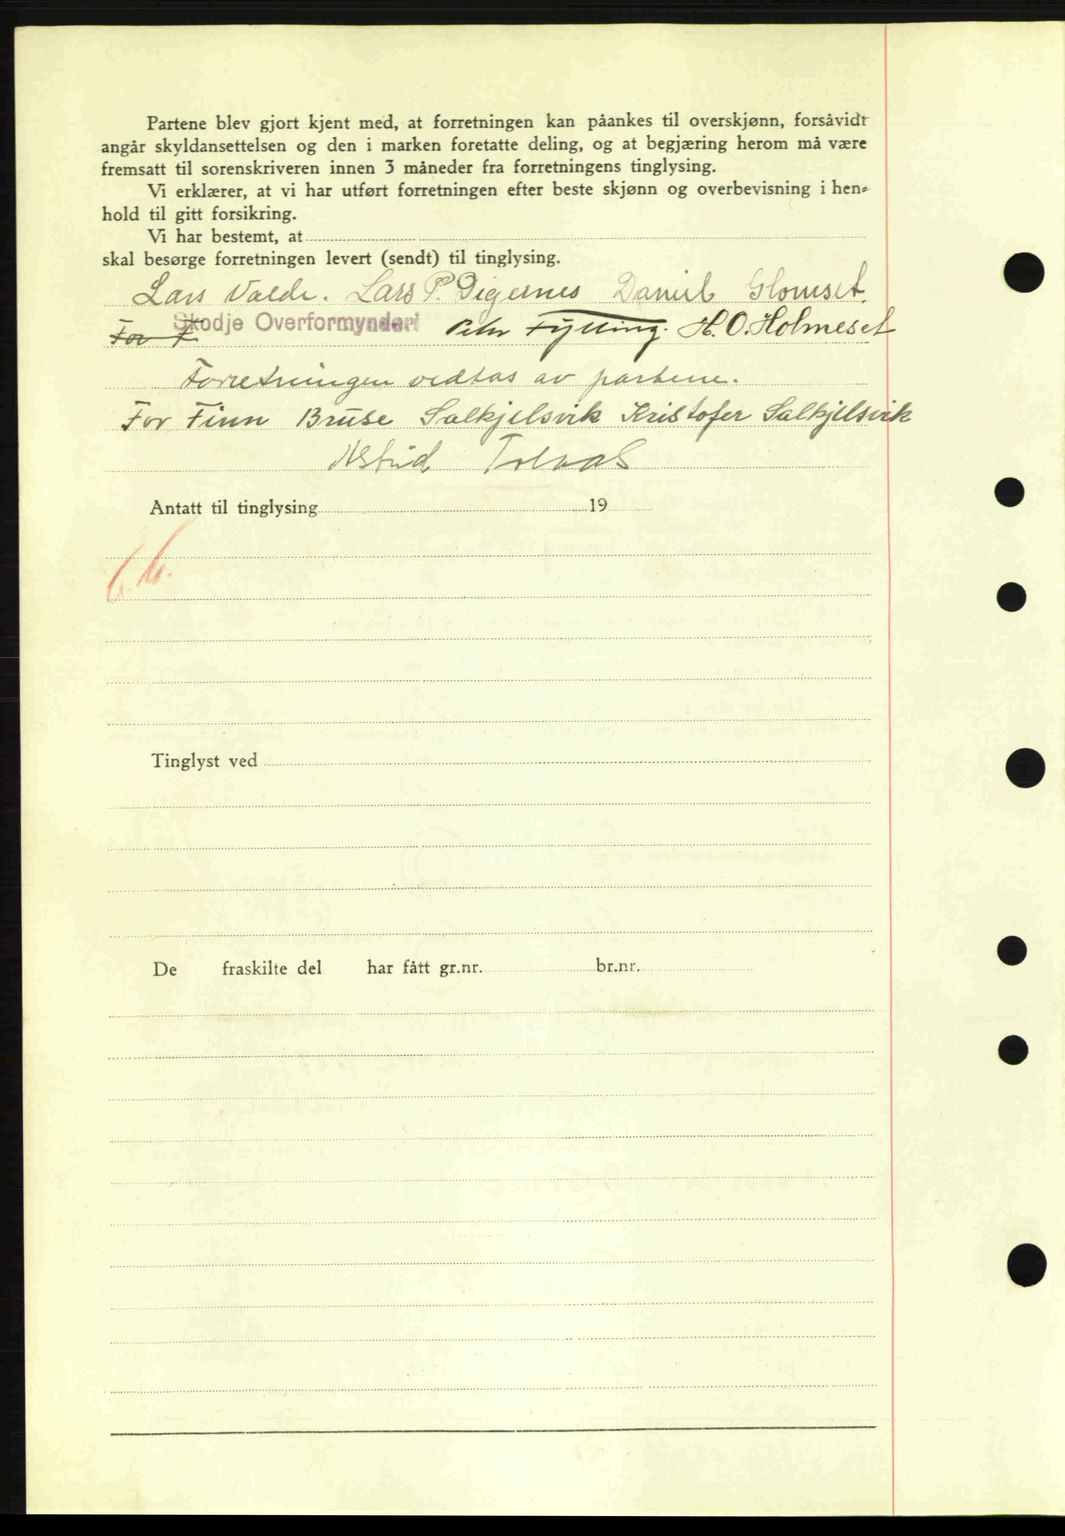 Partene blev gjort kjent med, at forretningen kan påankes til overskjønn, forsåvidt
angår skyldansettelsen og den i marken foretatte deling, og at begjæring herom må være
fremsatt til sorenskriveren innen 3 måneder fra forretningens tinglysing.
Vi erklærer, at vi har utført forretningen efter beste skjønn og overbevisning i hen-
hold til gitt forsikring.
Vi har bestemt, at
skal besørge forretningen levert (sendt) til tinglysing.
Lars Valde. Lars P. Digernes Daniel Glomset.
For F Skodje Overformynderi Peter Fylling. H. O. Holmeset
Forretningen vedtas av partene.
For Finn Bruse Salkjelsvik Kristofer Salkjelsvik
Astrid Tolaas
Antatt til tinglysing 19
Tinglyst ved
De fraskilte del har fått gr.nr. br.nr.